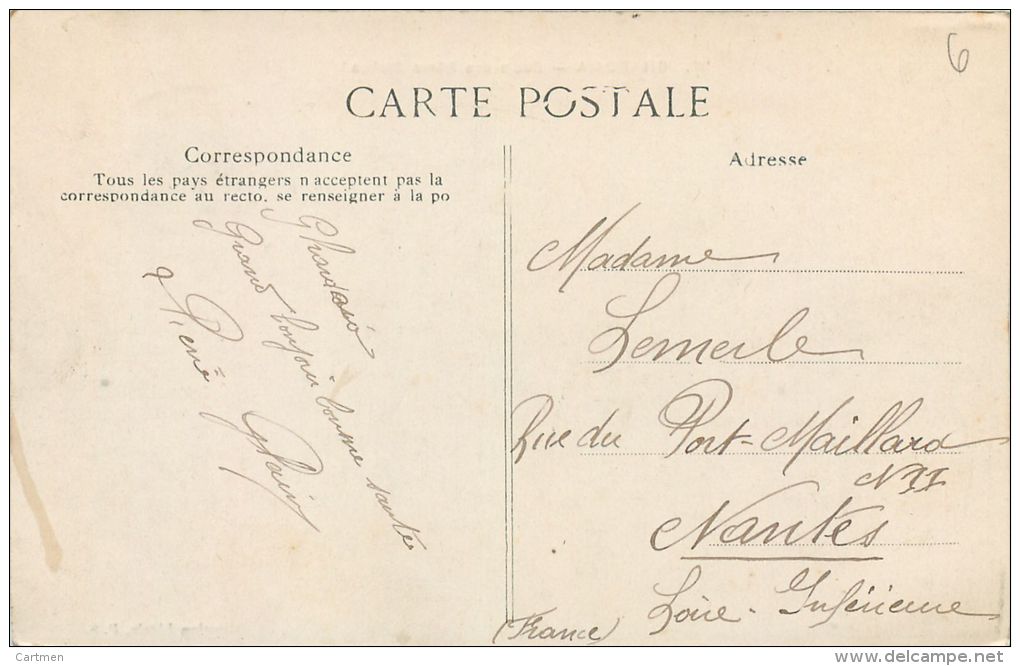 6
CARTE POSTALE
Correspondance
Tous les pays étrangers n acceptent pas la
correspondance au recto. se renseigner à la po
Adresse
Grand bonjour bonne santée
René
Madame
Lemerle
Rue du Port-Maillard
Nantes
Loire-Inférieure
(France)
Cartmen
delcampe.net